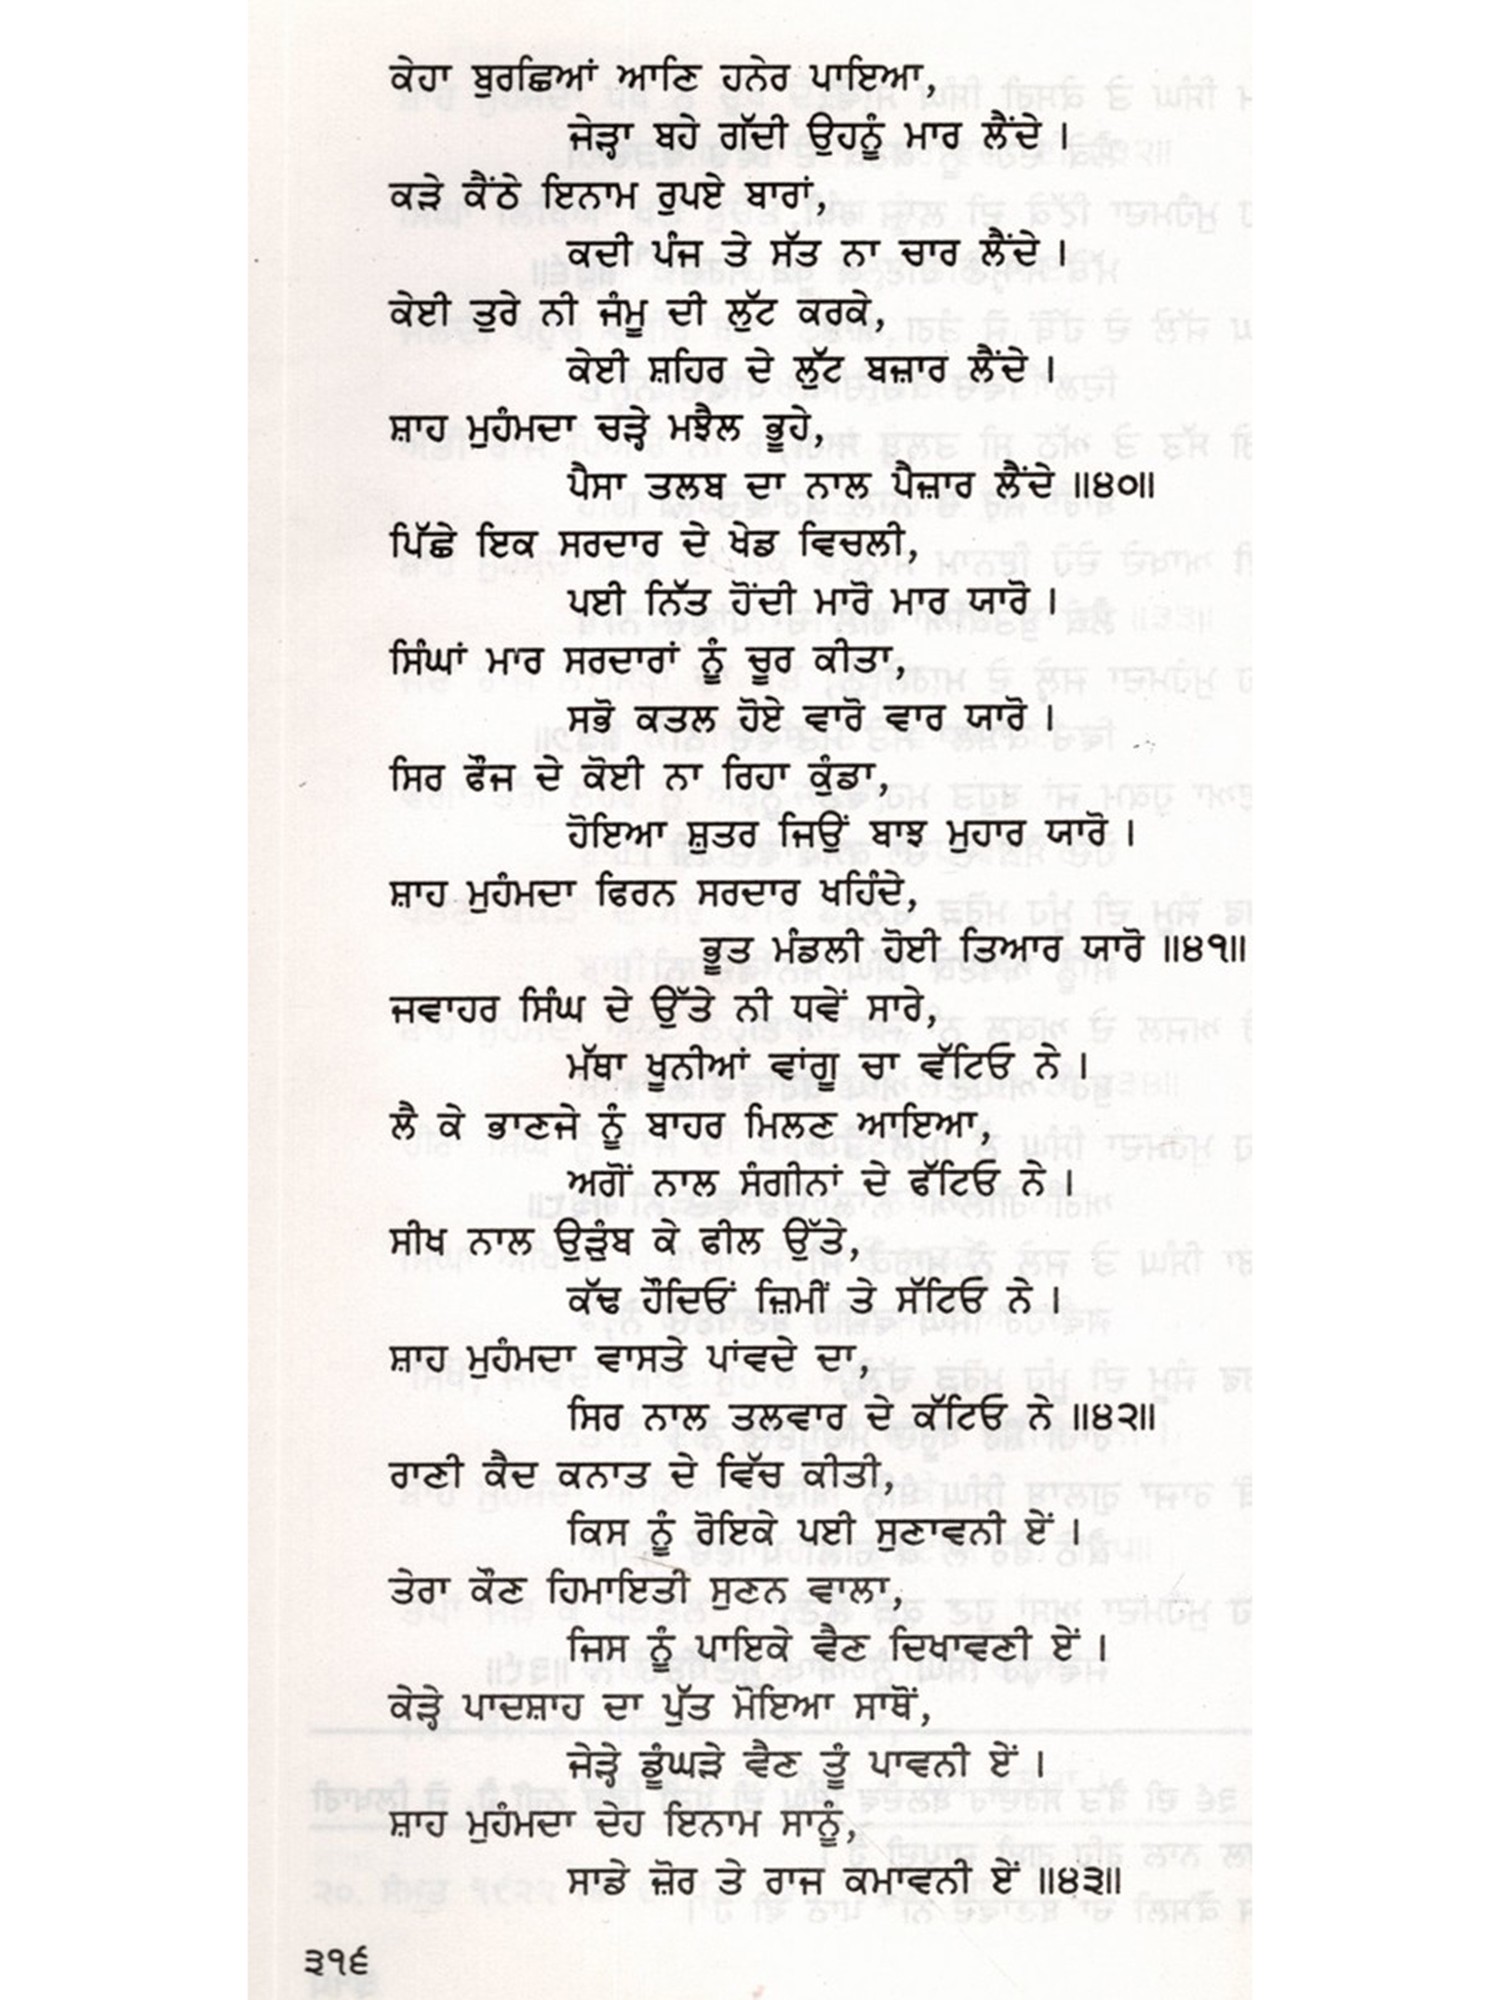 ਕੇਹਾ ਬੁਰਛਿਆਂ ਆਣਿ ਹਨੇਰ ਪਾਇਆ,
ਜੇੜ੍ਹਾ ਬਹੇ ਗੱਦੀ ਉਹਨੂੰ ਮਾਰ ਲੈਂਦੇ ।
ਕੜੇ ਕੈਂਠੇ ਇਨਾਮ ਰੁਪਏ ਬਾਰਾਂ,
ਕਦੀ ਪੰਜ ਤੇ ਸੱਤ ਨਾ ਚਾਰ ਲੈਂਦੇ ।
ਕੇਈ ਤੁਰੇ ਨੀ ਜੰਮੂ ਦੀ ਲੁੱਟ ਕਰਕੇ,
ਕੇਈ ਸ਼ਹਿਰ ਦੇ ਲੁੱਟ ਬਜ਼ਾਰ ਲੈਂਦੇ ।
ਸ਼ਾਹ ਮੁਹੰਮਦਾ ਚੜ੍ਹੇ ਮਝੈਲ ਭੂਹੇ,
ਪੈਸਾ ਤਲਬ ਦਾ ਨਾਲ ਪੈਜ਼ਾਰ ਲੈਂਦੇ ॥੪੦॥
ਪਿੱਛੇ ਇਕ ਸਰਦਾਰ ਦੇ ਖੇਡ ਵਿਚਲੀ,
ਪਈ ਨਿੱਤ ਹੋਂਦੀ ਮਾਰੋ ਮਾਰ ਯਾਰੋ ।
ਸਿੰਘਾਂ ਮਾਰ ਸਰਦਾਰਾਂ ਨੂੰ ਚੂਰ ਕੀਤਾ,
ਸਭੋ ਕਤਲ ਹੋਏ ਵਾਰੋ ਵਾਰ ਯਾਰੋ ।
ਸਿਰ ਫੌਜ ਦੇ ਕੋਈ ਨਾ ਰਿਹਾ ਕੁੰਡਾ,
ਹੋਇਆ ਸ਼ੁਤਰ ਜਿਉਂ ਬਾਝ ਮੁਹਾਰ ਯਾਰੋ ।
ਸ਼ਾਹ ਮੁਹੰਮਦਾ ਫਿਰਨ ਸਰਦਾਰ ਖਹਿੰਦੇ,
ਭੂਤ ਮੰਡਲੀ ਹੋਈ ਤਿਆਰ ਯਾਰੋ ॥੪੧॥
ਜਵਾਹਰ ਸਿੰਘ ਦੇ ਉੱਤੇ ਨੀ ਧਵੇਂ ਸਾਰੇ,
ਮੱਥਾ ਖੂਨੀਆਂ ਵਾਂਗੂ ਚਾ ਵੱਟਿਓ ਨੇ ।
ਲੈ ਕੇ ਭਾਣਜੇ ਨੂੰ ਬਾਹਰ ਮਿਲਣ ਆਇਆ,
ਅਗੋਂ ਨਾਲ ਸੰਗੀਨਾਂ ਦੇ ਫੱਟਿਓ ਨੇ ।
ਸੀਖ ਨਾਲ ਉੜੁੰਬ ਕੇ ਫੀਲ ਉੱਤੇ,
ਕੱਢ ਹੌਦਿਓਂ ਜ਼ਿਮੀਂ ਤੇ ਸੱਟਿਓ ਨੇ ।
ਸ਼ਾਹ ਮੁਹੰਮਦਾ ਵਾਸਤੇ ਪਾਂਵਦੇ ਦਾ,
ਸਿਰ ਨਾਲ ਤਲਵਾਰ ਦੇ ਕੱਟਿਓ ਨੇ ॥੪੨॥
ਰਾਣੀ ਕੈਦ ਕਨਾਤ ਦੇ ਵਿੱਚ ਕੀਤੀ,
ਕਿਸ ਨੂੰ ਰੋਇਕੇ ਪਈ ਸੁਣਾਵਨੀ ਏਂ ।
ਤੇਰਾ ਕੌਣ ਹਿਮਾਇਤੀ ਸੁਣਨ ਵਾਲਾ,
ਜਿਸ ਨੂੰ ਪਾਇਕੇ ਵੈਣ ਦਿਖਾਵਣੀ ਏਂ ।
ਕੇੜ੍ਹੇ ਪਾਦਸ਼ਾਹ ਦਾ ਪੁੱਤ ਮੋਇਆ ਸਾਥੋਂ,
ਜੇੜ੍ਹੇ ਡੂੰਘੜੇ ਵੈਣ ਤੂੰ ਪਾਵਨੀ ਏਂ ।
ਸ਼ਾਹ ਮੁਹੰਮਦਾ ਦੇਹ ਇਨਾਮ ਸਾਨੂੰ,
ਸਾਡੇ ਜ਼ੋਰ ਤੇ ਰਾਜ ਕਮਾਵਨੀ ਏਂ ॥੪੩॥
੩੧੬